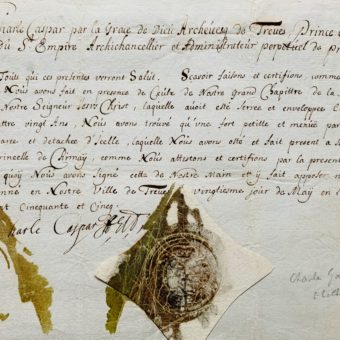 Charle Caspar par la Grace de Dieu Archevecq de Treves, Prince
du St Empire Archichancellier et Administrateur perpetuel de
Touts qui ces presentes verront Salut. Scavoir faisons et certifions, comme
Nous avons fait en presence de Ceulx de Nostre grand Chapittre de la
Nostre Seigneur Jesus Christ, laquelle avoit esté serree et enveloppee
attre vingt Ans, Nous avons trouvé qu'une fort petitte et menue par
are et detachee d'Icelle, laquelle Nous avons osté et fait present a
rincelle de Chimay, comme Nous attestons et certifions par la presente
quoy Nous avons signé cette de Nostre Main et y fait apposer
onné en Nostre Ville de Treves vingtiesme jour de May en
nt Cinquante et Cincq.
Charle Caspar
Charle